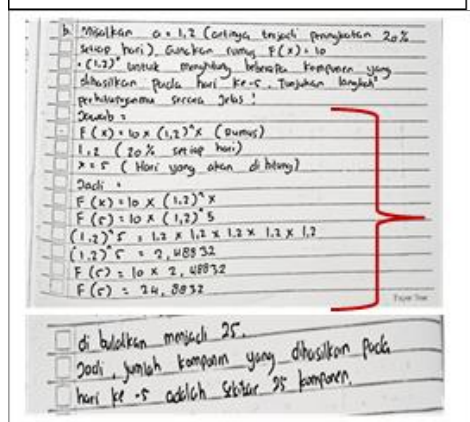 b. Misalkan a = 1,2 (artinya terjadi peningkatan 20%
setiap hari). Gunakan rumus F(x) = 10
· (1,2)^x untuk menghitung beberapa komponen yang
dihasilkan pada hari ke-5. Tunjukan langkah"
perhitunganmu secara jelas!
Jawab :
F(x) = 10 x (1,2)^x (rumus)
1,2 (20% setiap hari)
x = 5 (Hari yang akan di hitung)
Jadi :
F(x) = 10 x (1,2)^x
F(5) = 10 x (1,2)^5
(1,2)^5 = 1,2 x 1,2 x 1,2 x 1,2 x 1,2
(1,2)^5 = 2,48832
F(5) = 10 x 2,48832
F(5) = 24,8832
di bulatkan menjadi 25.
Jadi, jumlah komponen yang dihasilkan pada
hari ke-5 adalah sekitar 25 komponen.